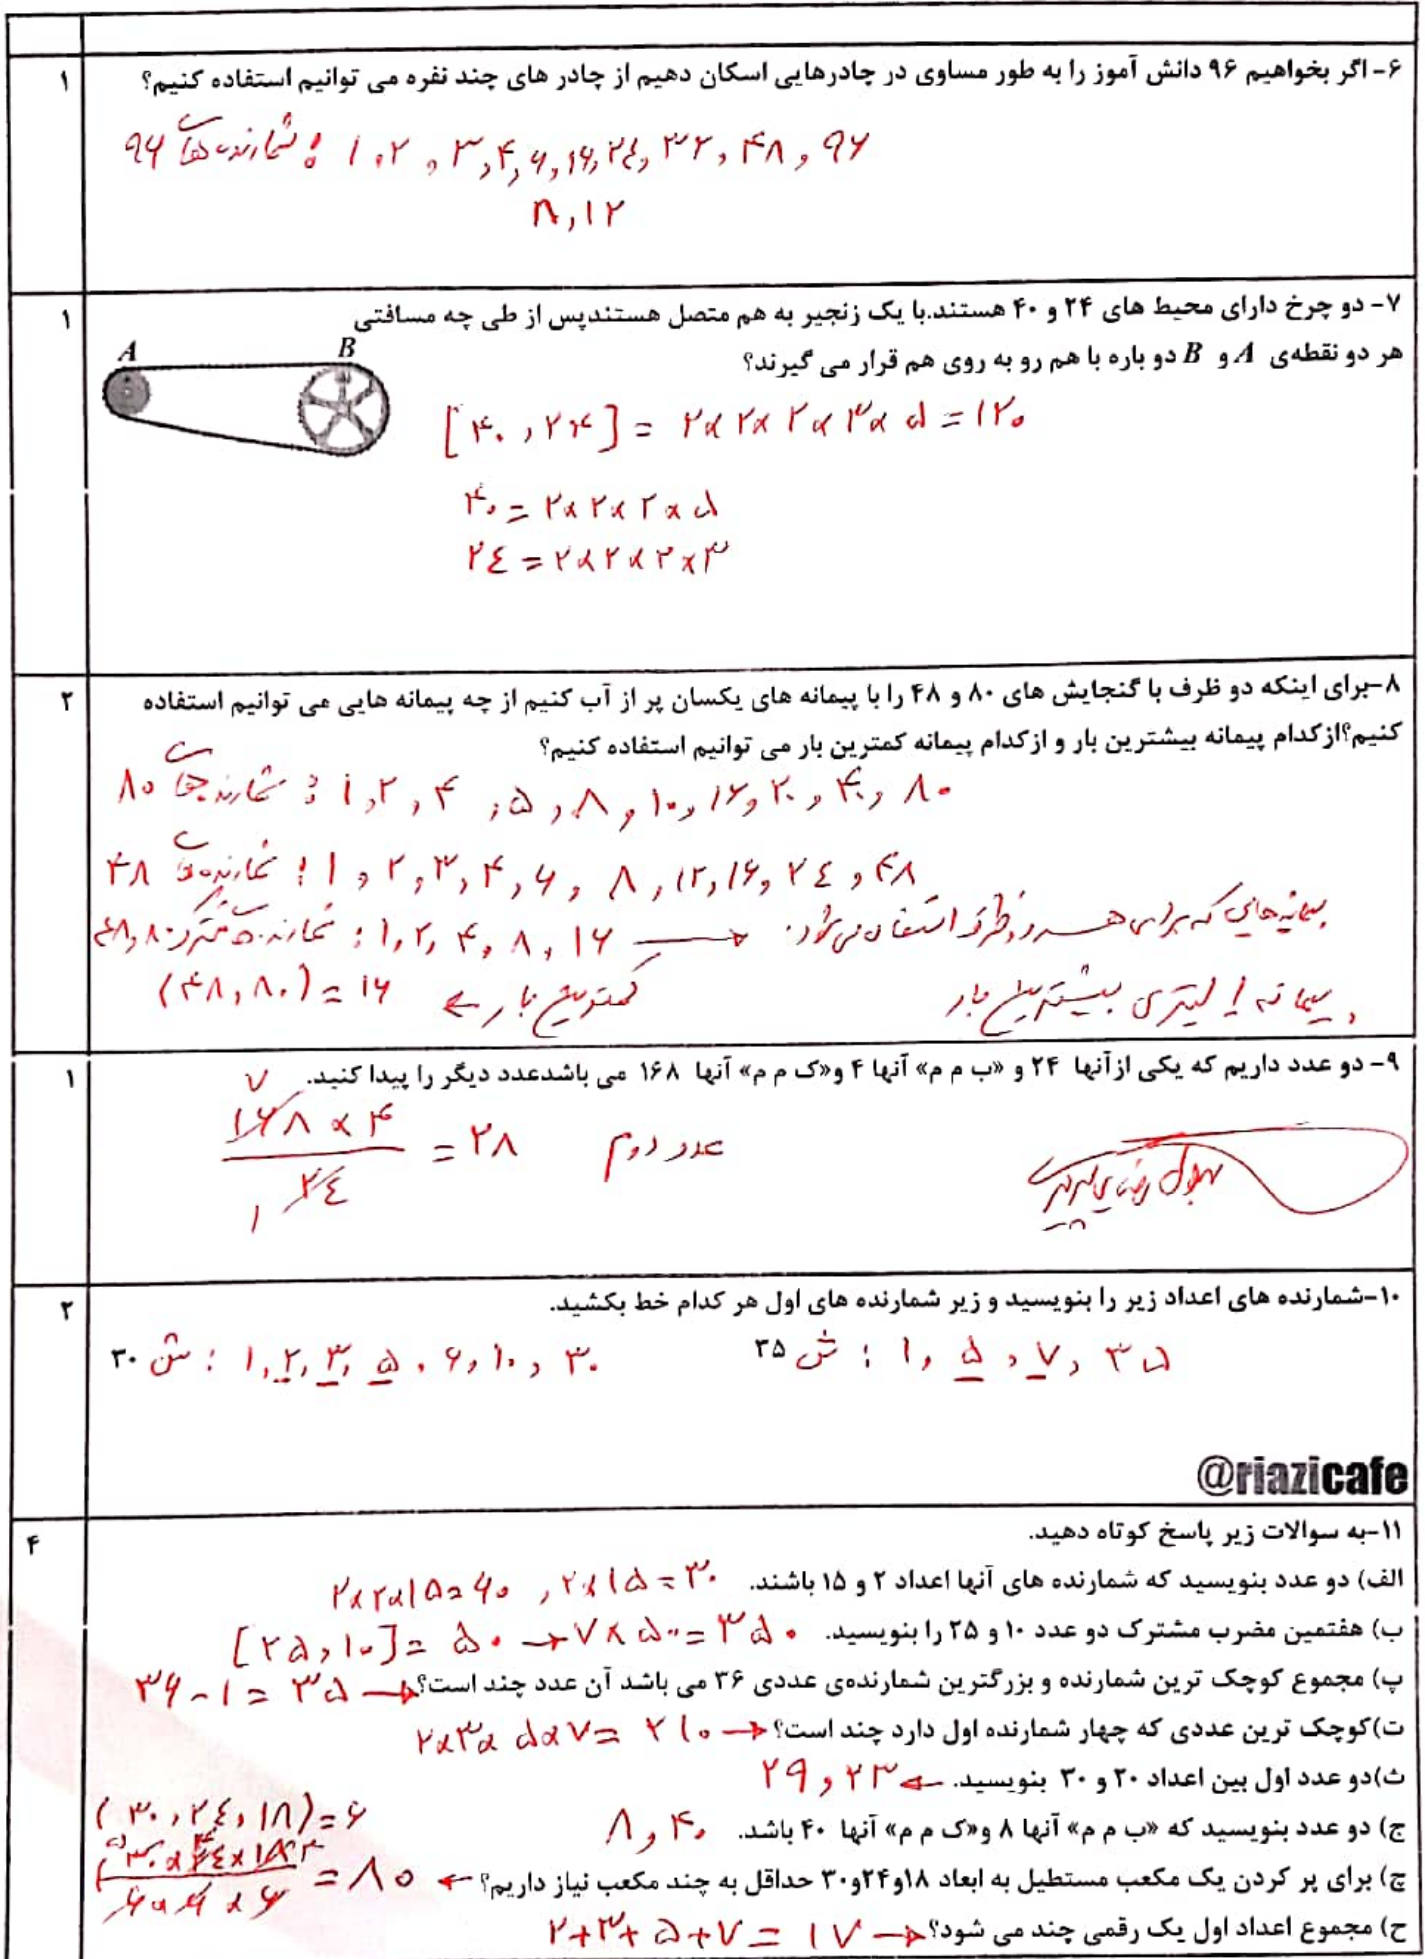 ۶- اگر بخواهیم ۹۶ دانش آموز را به طور مساوی در چادرهایی اسکان دهیم از چادر های چند نفره می توانیم استفاده کنیم؟
۱
شمارنده های ۹۶ : ۱, ۲, ۳, ۴, ۶, ۱۶, ۲۴, ۳۲, ۴۸, ۹۶
۸, ۱۲
۷- دو چرخ دارای محیط های ۲۴ و ۴۰ هستند.با یک زنجیر به هم متصل هستندپس از طی چه مسافتی
۱
هر دو نقطه‌ی A و B دو باره با هم رو به روی هم قرار می گیرند؟
A B
[۴۰, ۲۴] = ۲×۲×۲×۳×۵ = ۱۲۰
۴۰ = ۲×۲×۲×۵
۲۴ = ۲×۲×۲×۳
۸-برای اینکه دو ظرف با گنجایش های ۸۰ و ۴۸ را با پیمانه های یکسان پر از آب کنیم از چه پیمانه هایی می توانیم استفاده
۲
کنیم؟ازکدام پیمانه بیشترین بار و ازکدام پیمانه کمترین بار می توانیم استفاده کنیم؟
شمارنده های ۸۰ : ۱, ۲, ۴, ۵, ۸, ۱۰, ۱۶, ۲۰, ۴۰, ۸۰
شمارنده های ۴۸ : ۱, ۲, ۳, ۴, ۶, ۸, ۱۲, ۱۶, ۲۴, ۴۸
شمارنده های مشترک ۸۰, ۴۸ : ۱, ۲, ۴, ۸, ۱۶ → پیمانه هایی که برای هر دو ظرف استفاده می شود.
(۴۸, ۸۰) = ۱۶ ← کمترین بار
پیمانه ۱ لیتری بیشترین بار
۹- دو عدد داریم که یکی ازآنها ۲۴ و «ب م م» آنها ۴ و«ک م م» آنها ۱۶۸ می باشدعدد دیگر را پیدا کنید.
۱
۷
۱۶۸ × ۴
۲۴
۱
= ۲۸ عدد دوم
۱۰-شمارنده های اعداد زیر را بنویسید و زیر شمارنده های اول هر کدام خط بکشید.
۲
ش ۳۵ : ۱, ۵, ۷, ۳۵
ش ۳۰ : ۱, ۲, ۳, ۵, ۶, ۱۰, ۳۰
@riazicafe
۱۱-به سوالات زیر پاسخ کوتاه دهید.
۴
الف) دو عدد بنویسید که شمارنده های آنها اعداد ۲ و ۱۵ باشند. ۲×۱۵=۳۰ , ۲×۲×۱۵=۶۰
ب) هفتمین مضرب مشترک دو عدد ۱۰ و ۲۵ را بنویسید. [۲۵, ۱۰] = ۵۰ → ۷×۵۰=۳۵۰
پ) مجموع کوچک ترین شمارنده و بزرگترین شمارنده‌ی عددی ۳۶ می باشد آن عدد چند است؟ → ۳۶-۱ = ۳۵
ت)کوچک ترین عددی که چهار شمارنده اول دارد چند است؟ → ۲×۳×۵×۷= ۲۱۰
ث)دو عدد اول بین اعداد ۲۰ و ۳۰ بنویسید. ← ۲۹, ۲۳
ج) دو عدد بنویسید که «ب م م» آنها ۸ و«ک م م» آنها ۴۰ باشد. ۸, ۴۰
چ) برای پر کردن یک مکعب مستطیل به ابعاد ۱۸و۲۴و۳۰ حداقل به چند مکعب نیاز داریم؟ ←
(۳۰, ۲۴, ۱۸)=۶
۵ ۴ ۳
۳۰×۲۴×۱۸
۶×۶×۶
= ۸۰
ح) مجموع اعداد اول یک رقمی چند می شود؟ → ۲+۳+۵+۷ = ۱۷